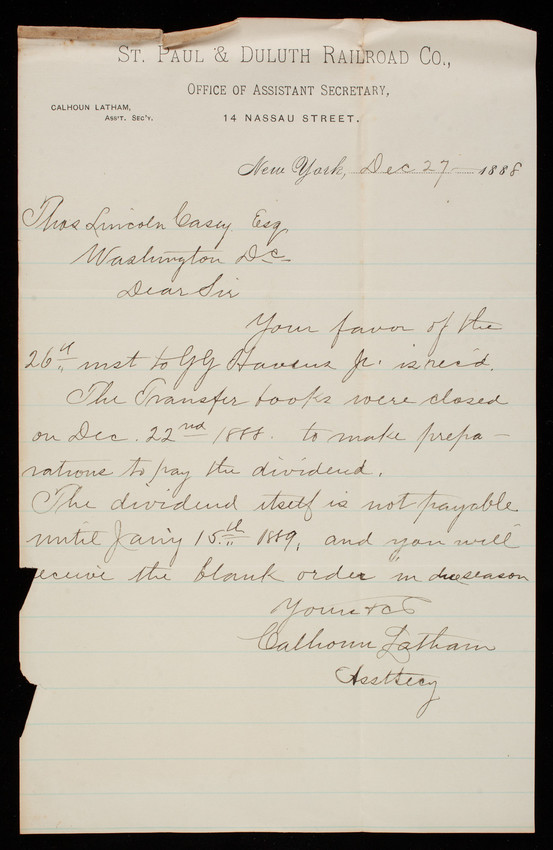 ST. PAUL & DULUTH RAILROAD CO.,
OFFICE OF ASSISTANT SECRETARY,
CALHOUN LATHAM,
ASS'T. SEC'Y.
14 NASSAU STREET.
New York, Dec 27 1888
Thos Lincoln Casey Esq
Washington Dc
Dear Sir
Your favor of the
26th inst to GG Havens Jr. is rec'd.
The Transfer books were closed
on Dec. 22nd 1888. to make prepa-
rations to pay the dividend.
The dividend itself is not payable
until Jan'y 15th 1889, and you will
eceive the blank order in due season
Yours &c
Calhoun Latham
Asst Secy